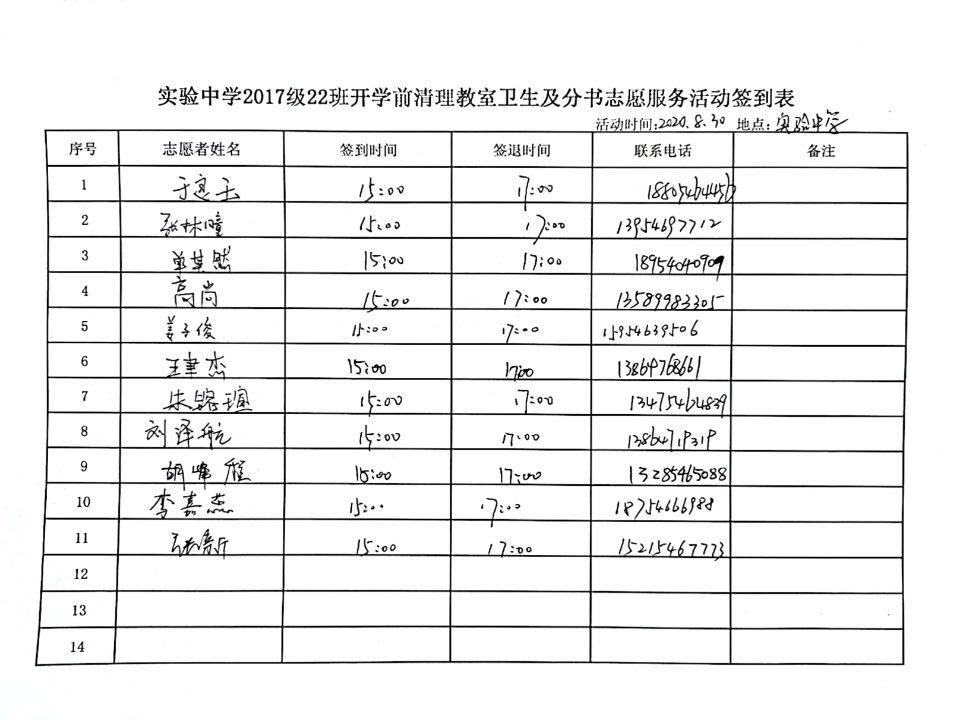 实验中学2017级22班开学前清理教室卫生及分书志愿服务活动签到表
活动时间:2020.8.30 地点:实验中学
序号 志愿者姓名 签到时间 签退时间 联系电话 备注
1 15:00 17:00 18805464456
2 张林瞳 15:00 17:00 13954697712
3 单其然 15:00 17:00 18954040909
4 高尚 15:00 17:00 13589983305
5 姜子俊 15:00 17:00 15954639506
6 王聿杰 15:00 17:00 13864768661
7 朱铭瑄 15:00 17:00 13475464839
8 刘泽航 15:00 17:00
9 胡峰程 15:00 17:00 13285465088
10 李嘉蕊 15:00 17:00 18754666988
11 15:00 17:00 15215467773
12
13
14